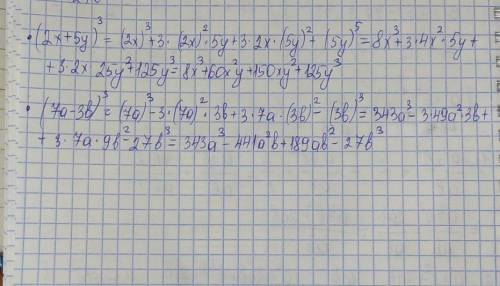 • (2x+5y)³ = (2x)³+3·(2x)²·5y+3·2x·(5y)²+(5y)³=8x³+3·4x²·5y+
+3·2x·25y²+125y³=8x³+60x²y+150xy²+125y³
• (7a-3b)³=(7a)³-3·(7a)²·3b+3·7a·(3b)²-(3b)³=343a³-3·49a²·3b+
+3·7a·9b²-27b³=343a³-441a²b+189ab²-27b³